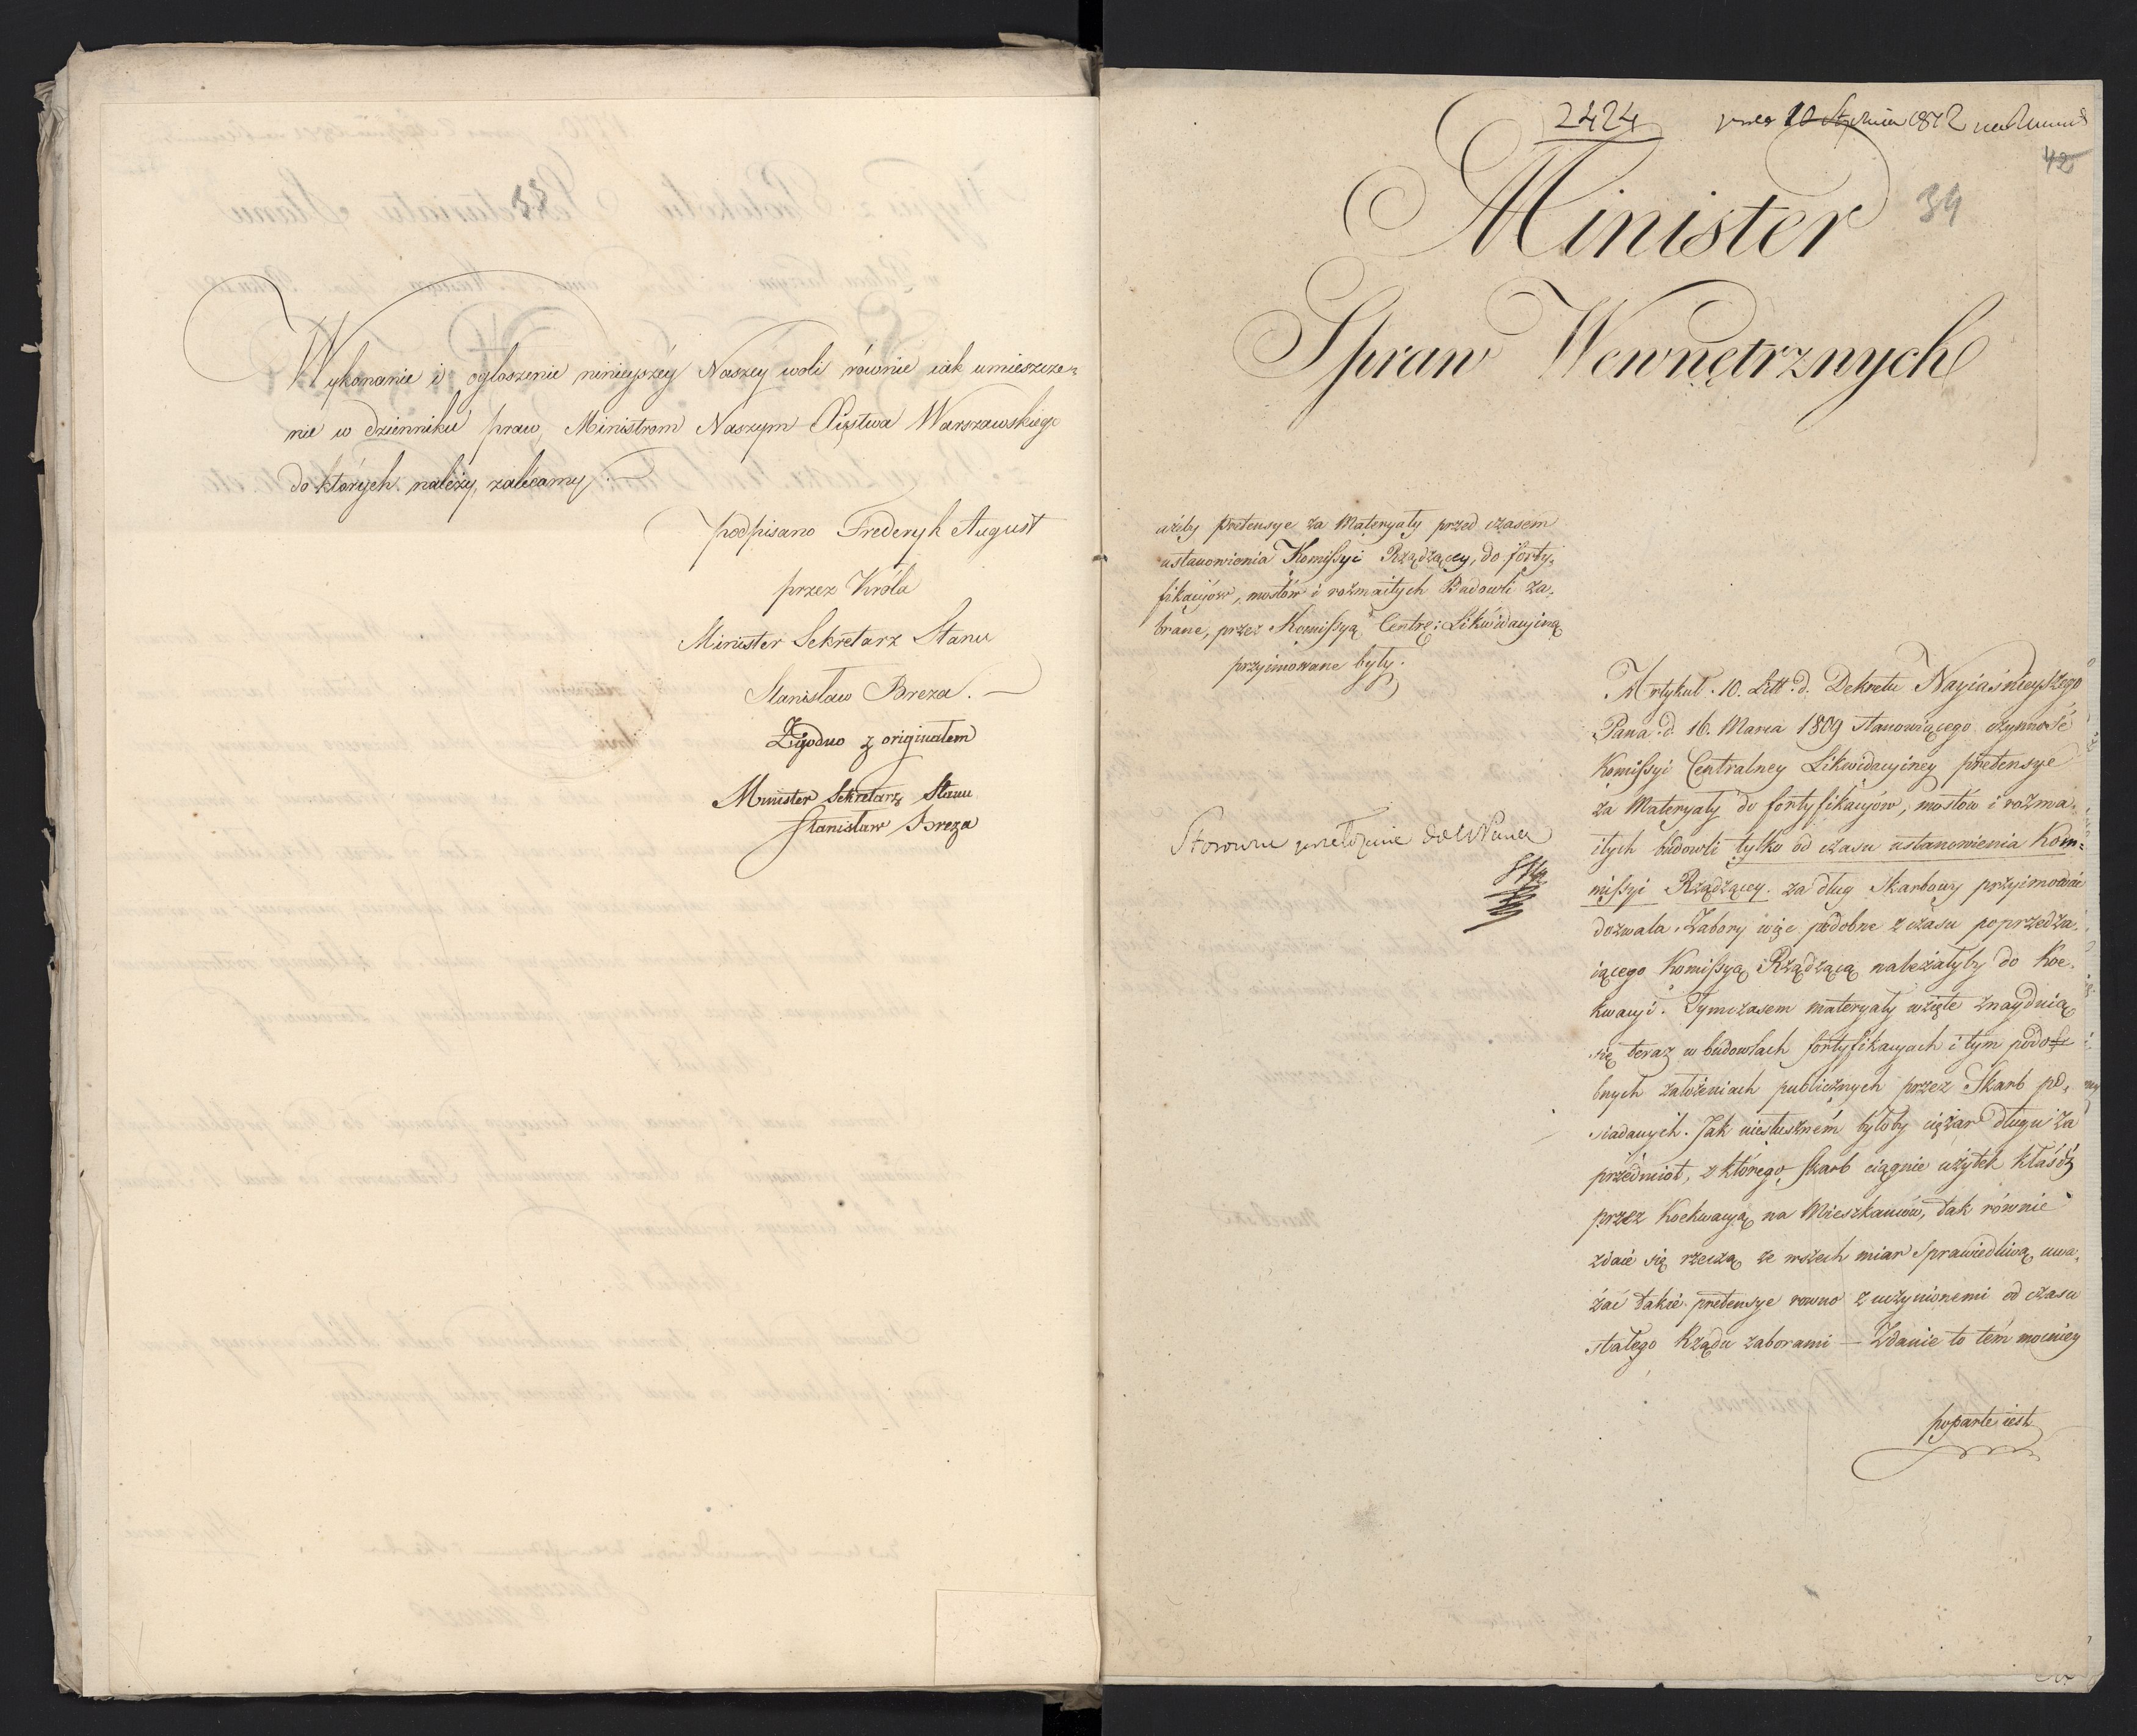 33
Wykonanie i ogłoszenie ninieyszéy Naszey woli równie iak umieszcze=
nie w dzienniku praw, Ministrom Naszym Xięstwa Warszawskiego
do których należy, zalecamy. —
podpisano Frederyk August
przez Króla
Minister Sekretarz Stanu
Stanisław Breza. —
Zgodno z originałem
Minister Sekretarz Stanu
Stanisław Breza
2424
10 Stycznia 1812
42
34
Minister
Spraw Wewnętrznych
ażeby pretensye za Materyały przed czasem
ustanowienia Komissyi Rządzącey, do forty-
fikacyów, mostów i rozmaitych Budowli za-
brane, przez Komissyą Centr: Likwidacyiną
przyimowane były.
Stosowne
Artykuł. 10. Litt. d. Dekretu Nayiaśnieyszego
Pana d. 16. Marca 1809 stanowiącego czynność
Komissyi Centralney Likwidacyiney pretensye
za Materyały do fortyfikacyów, mostów i rozma-
itych budowli tylko od czasu ustanowienia Kom=
missyi Rządzącey. za dług Skarbowy przyimować
dozwala. Zabory więc podobne z czasu poprzedza-
iącego Komissyą Rządzącą należałyby do Koe-
kwacyi. Tymczasem materyały wzięte znayduią
się teraz w budowlach fortyfikacyach i tym podo
bnych założeniach publicznych przez Skarb po-
siadanych. Jak niesłuszném byłoby ciężar długu za
przedmiot, z którego Skarb ciągnie użytek kłaść
przez Koekwacyą na Mieszkańców, tak równie
zdaie się rzeczą ze wszech miar Sprawiedliwą uwa-
żać takie pretensye rowno z uczynionemi od czasu
stałego Rządu zaborami — Zdanie to tém mocniey
poparte iest